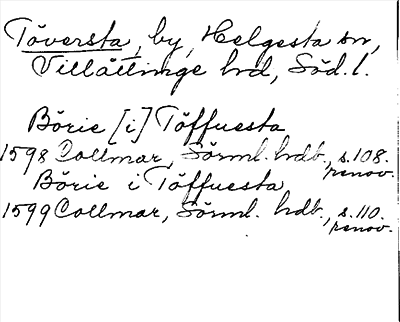 Töversta, by, Helgesta sn,
Villåttinge hd, Söd. l.
Börie [i] Töffuesta
1598 Collmar, Sörml. hdb., s. 108.
renov.
Börie i Töffuesta
1599 Collmar, Sörml. hdb., s. 110.
renov.